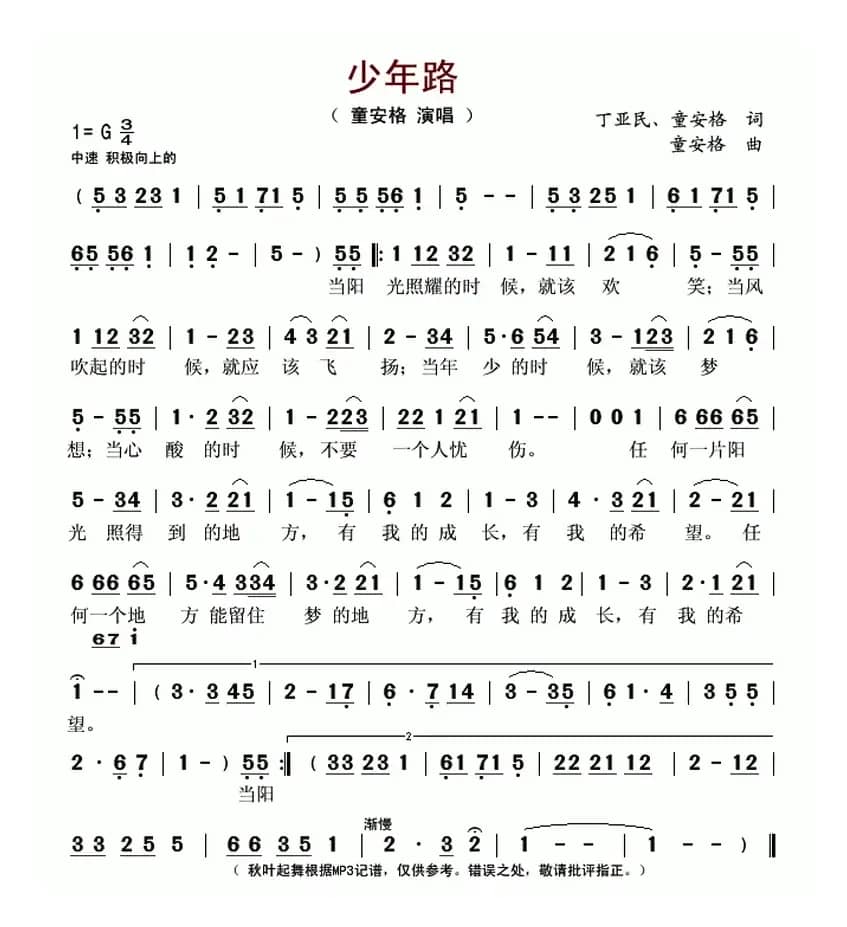 少年路
（ 童安格 演唱 ）
1= G 3/4
丁亚民、童安格 词
中速 积极向上的
童安格 曲
( 5 3 23 1 | 5 1 71 5 | 5 5 56 1 | 5 - - | 5 3 25 1 | 6 1 71 5 |
65 56 1 | 1 2 - | 5 - ) 55 ‖: 1 12 32 | 1 - 11 | 2 1 6 | 5 - 55 |
当阳 光照耀的时 候，就该 欢 笑；当风
1 12 32 | 1 - 23 | 4 3 21 | 2 - 34 | 5· 6 54 | 3 - 123 | 2 1 6 |
吹起的时 候，就应 该 飞 扬；当年 少 的时 候，就该 梦
5 - 55 | 1· 2 32 | 1 - 223 | 22 1 21 | 1 - - | 0 0 1 | 6 66 65 |
想；当心 酸 的时 候，不要 一个人忧 伤。 任 何一片阳
5 - 34 | 3· 2 21 | 1 - 15 | 6 1 2 | 1 - 3 | 4 · 3 21 | 2 - 21 |
光 照得 到 的地 方，有 我 的 成 长，有 我 的希 望。任
6 66 65 | 5· 4 334 | 3· 2 21 | 1 - 15 | 6 1 2 | 1 - 3 | 2· 1 21 |
何一个地 方 能留住 梦 的地 方，有 我 的 成 长，有 我 的希
67 i
1
1 - - | ( 3· 3 45 | 2 - 17 | 6 · 7 14 | 3 - 35 | 6 1· 4 | 3 5 5 |
望。
2
2 · 6 7 | 1 - ) 55 :‖ ( 33 23 1 | 61 71 5 | 22 21 12 | 2 - 12 |
当阳
渐慢
3 3 2 5 5 | 6 6 3 5 1 | 2 · 3 2 | 1 - - | 1 - - ) ‖
（ 秋叶起舞根据MP3记谱，仅供参考。错误之处，敬请批评指正。）